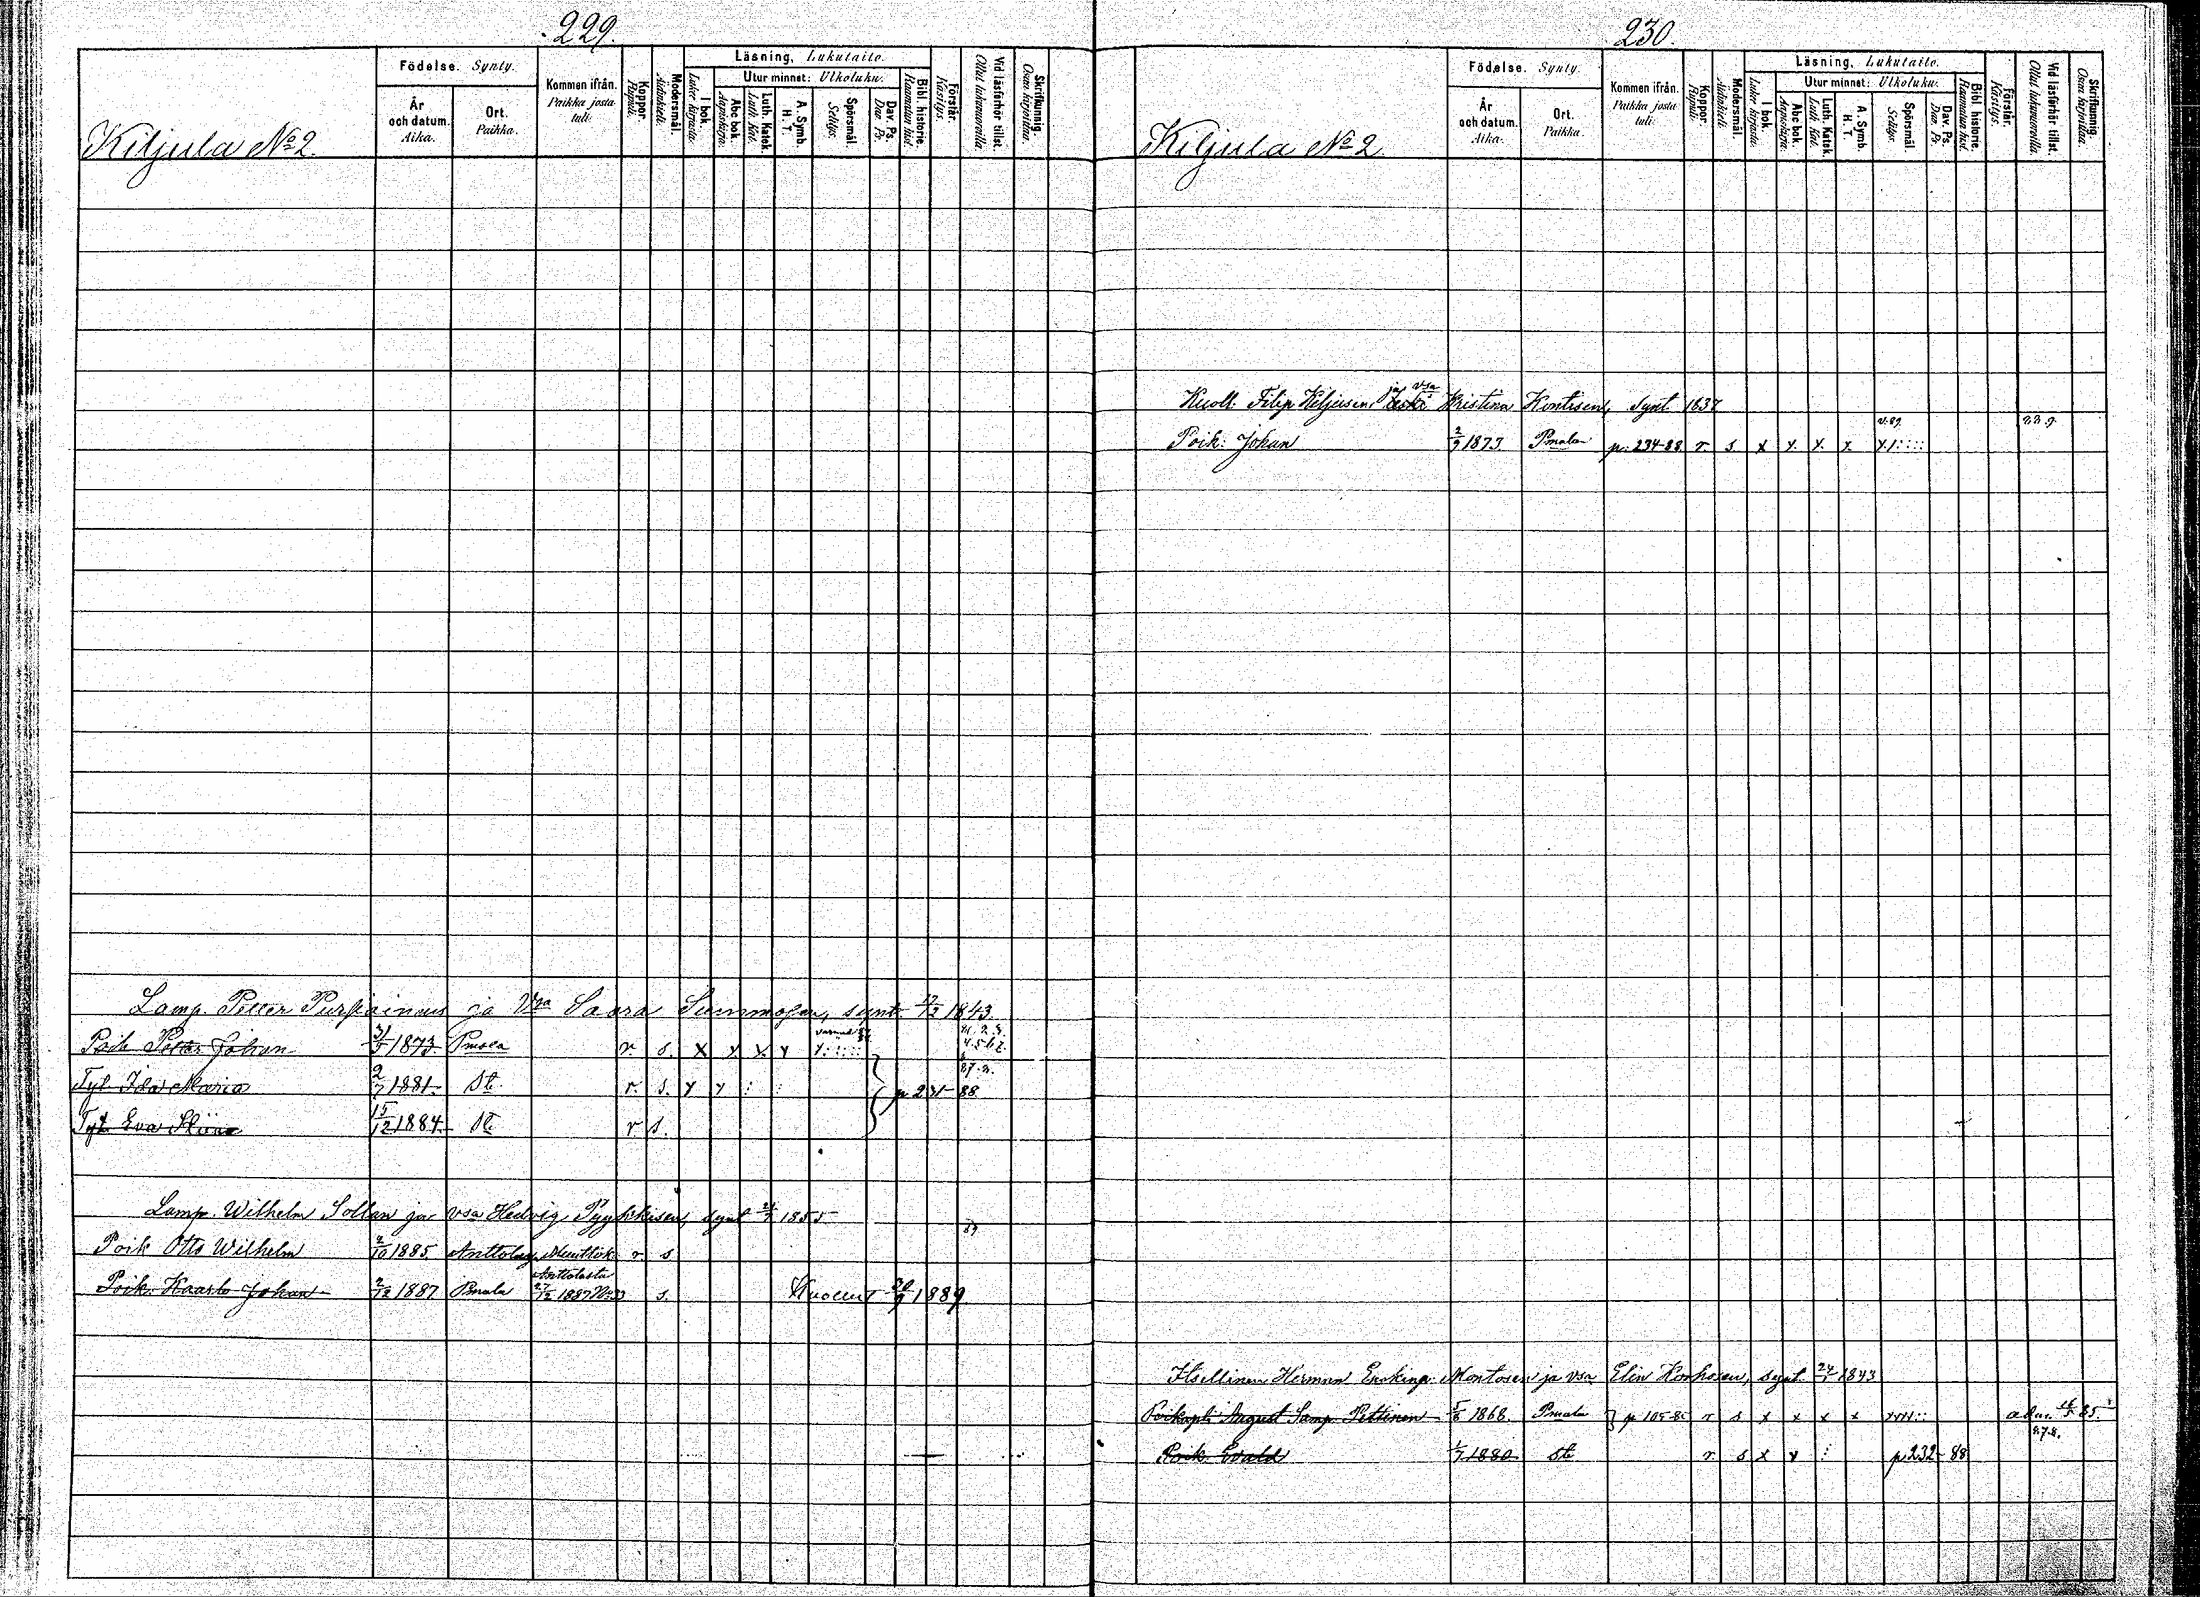 229.
Kiljula No 2.
Födelse. Synty.
År och datum. Aika.
Ort. Paikka.
Kommen ifrån. Paikka josta tuli.
Koppor. Rupuli.
Modersmål. Äidinkieli.
Läsning, Lukutaito.
I bok. Lukee kirjasta.
Utur minnet: Ulkoluku.
Abc bok. Aapiskirja.
Luth. Katek. Luth. Kat.
A. Symb. H. T.
Spörsmål. Selitys.
Dav. Ps. Dav. Ps.
Bibl. historie. Raamatun hist.
Förstår. Käsitys.
Vid läsförhör tillst. Ollut lukuvuorolla.
Skrifkunnig. Osaa kirjoittaa.
Lamp. Petter Purhainen ja Vsa Saara Summasen, synt 17/12 1843.
Poik Petter Johan 31/5 1873. Pmala r. s. x x x x
Tyt Ida Maria 2/7 1881. St r. s. x x : : p 231-88
Tyt Eva Stiina 15/12 1884. St r s.
Lamp. Wilhelm Sollan ja vsa Hedvig Pyykkisen, synt 24/7 1855
Poik Otto Wilhelm 2/10 1885. Anttola r s 89
Poik. Kaarlo Johan 2/12 1887 Pmala Anttolasta 27/12 1887 s. Kuollut 20/9 1889
230.
Kiljula No 2.
Födelse. Synty.
År och datum. Aika.
Ort. Paikka.
Kommen ifrån. Paikka josta tuli.
Koppor. Rupuli.
Modersmål. Äidinkieli.
Läsning, Lukutaito.
I bok. Lukee kirjasta.
Utur minnet: Ulkoluku.
Abc bok. Aapiskirja.
Luth. Katek. Luth. Kat.
A. Symb. H. T.
Spörsmål. Selitys.
Dav. Ps. Dav. Ps.
Bibl. historie. Raamatun hist.
Förstår. Käsitys.
Vid läsförhör tillst. Ollut lukuvuorolla.
Skrifkunnig. Osaa kirjoittaa.
Kuoll. Filip Kiljusen ja vsa Kristina Kontisen, synt 1837
Poik. Johan 2/9 1873. Pmala p. 234-88. r. s. x x. x. x. v. 89. 8.8.9.
Itsellinen Herman Enskinp. Montosen ja vsa Elin Korhosen, synt. 24/1 1843
Poikapli August Samp. Pettinen 5/6 1868. Pmala r s x x x x adm. 85.
Poik. Evald 1/7 1880 St r. s x x : p 232-88 8.7.8.